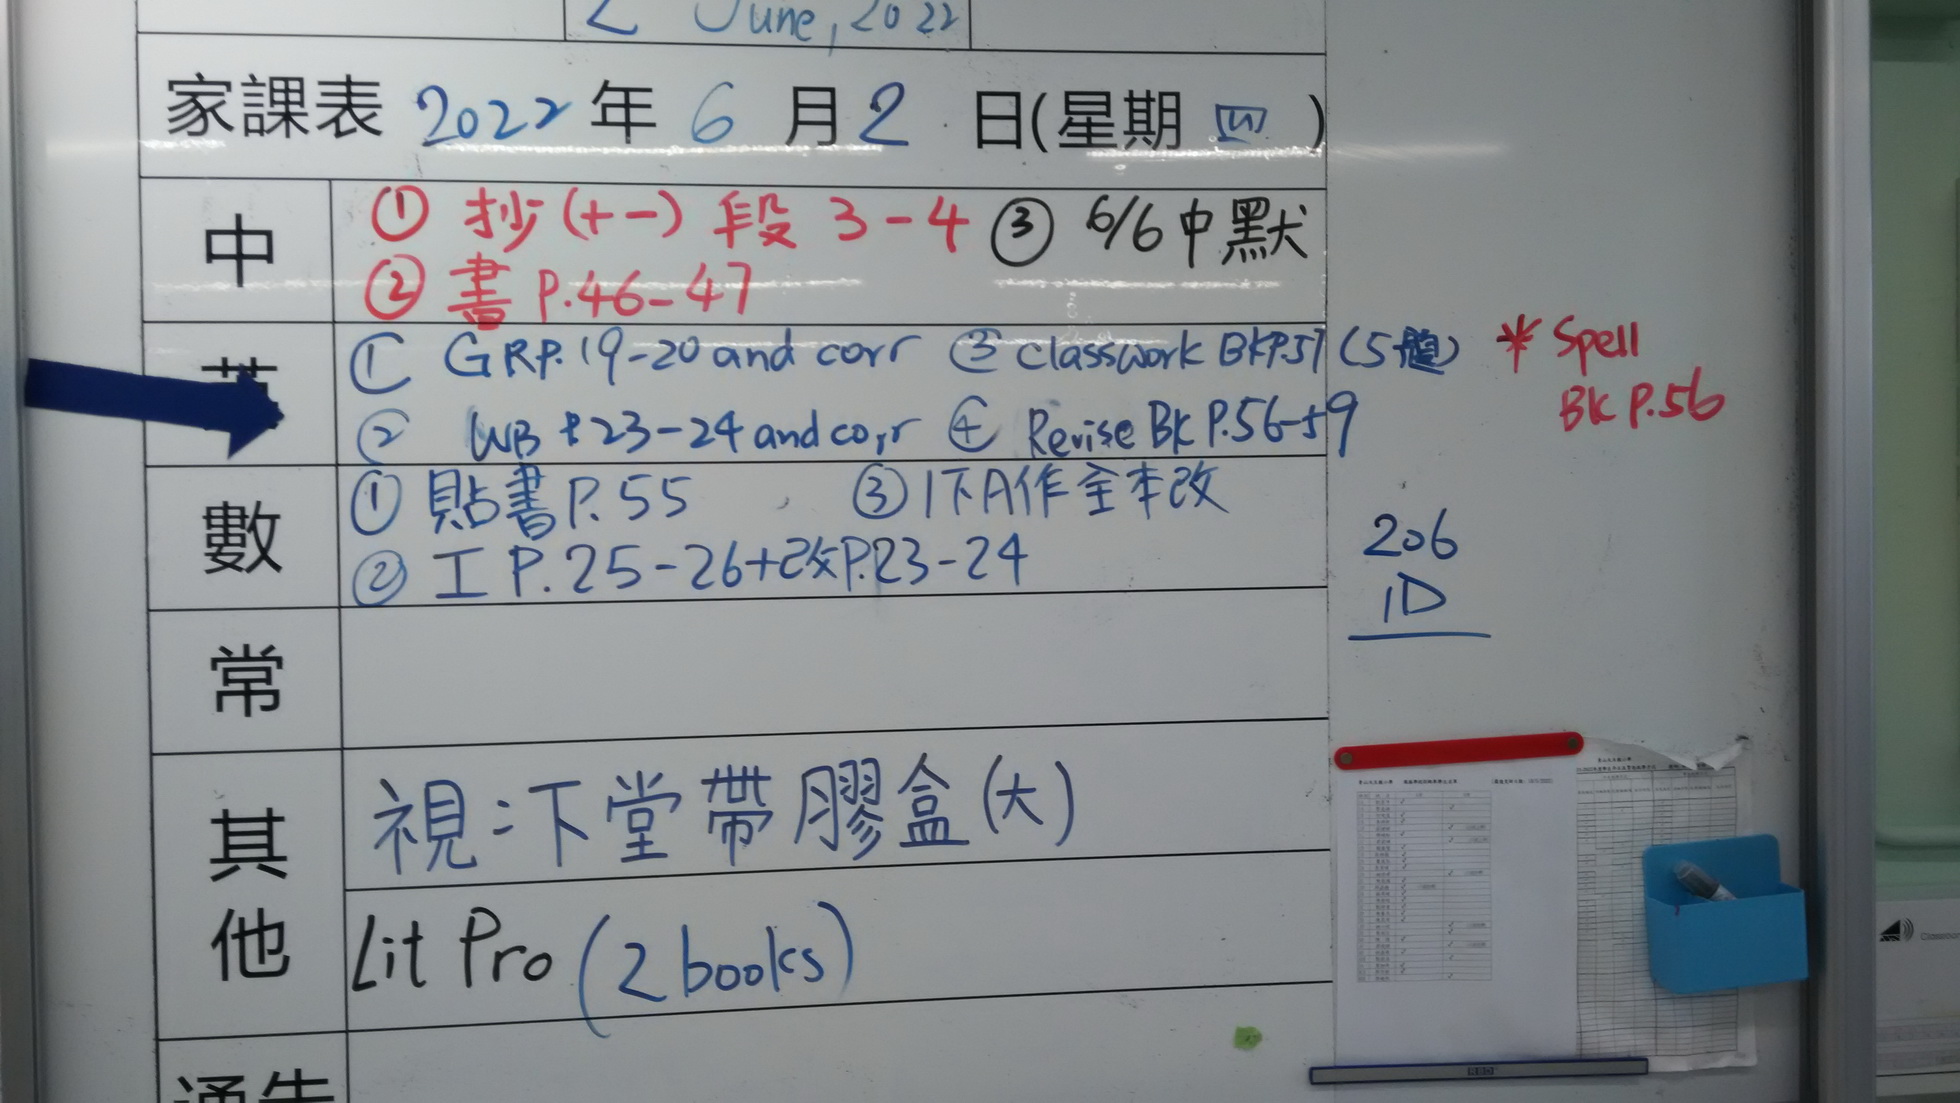 2 June, 2022
家課表 2022 年 6 月 2 日(星期 四 )
中
① 抄(十一) 段 3-4 ③ 6/6 中默
② 書 P.46-47
英
① GR P.19-20 and corr ③ Classwork BK P.57 (5題)
② WB 23-24 and corr ④ Revise BK P.56-59
* Spell
BK P.56
數
① 貼書 P.55 ③ 1下A作全本改
② 工 P.25-26+改P.23-24
206
1D
常
其他
視:下堂帶膠盒(大)
Lit Pro (2 books)
通告